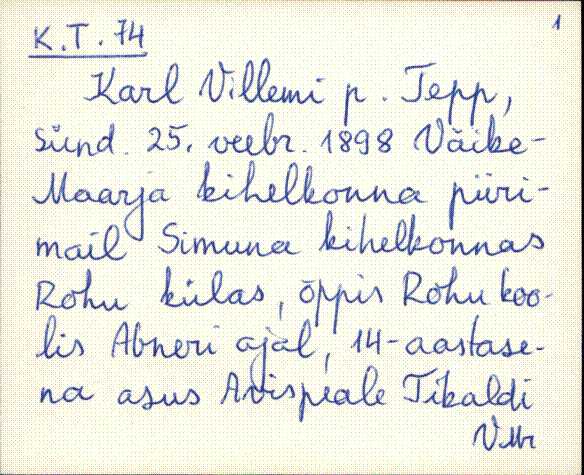 1
K.T. 74
Karl Villemi p. Tepp,
sünd. 25. veebr. 1898 Väike-
Maarja kihelkonna piiri-
mail Simuna kihelkonnas
Rohu külas, õppis Rohu koo-
lis Abneri ajal, 14-aastase-
na asus Avispeale Tikaldi
VMr